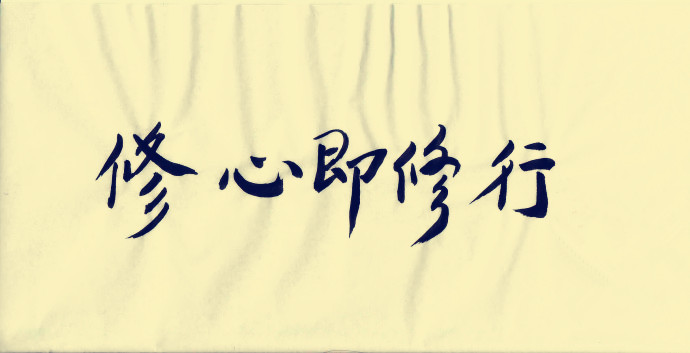 修心即修行